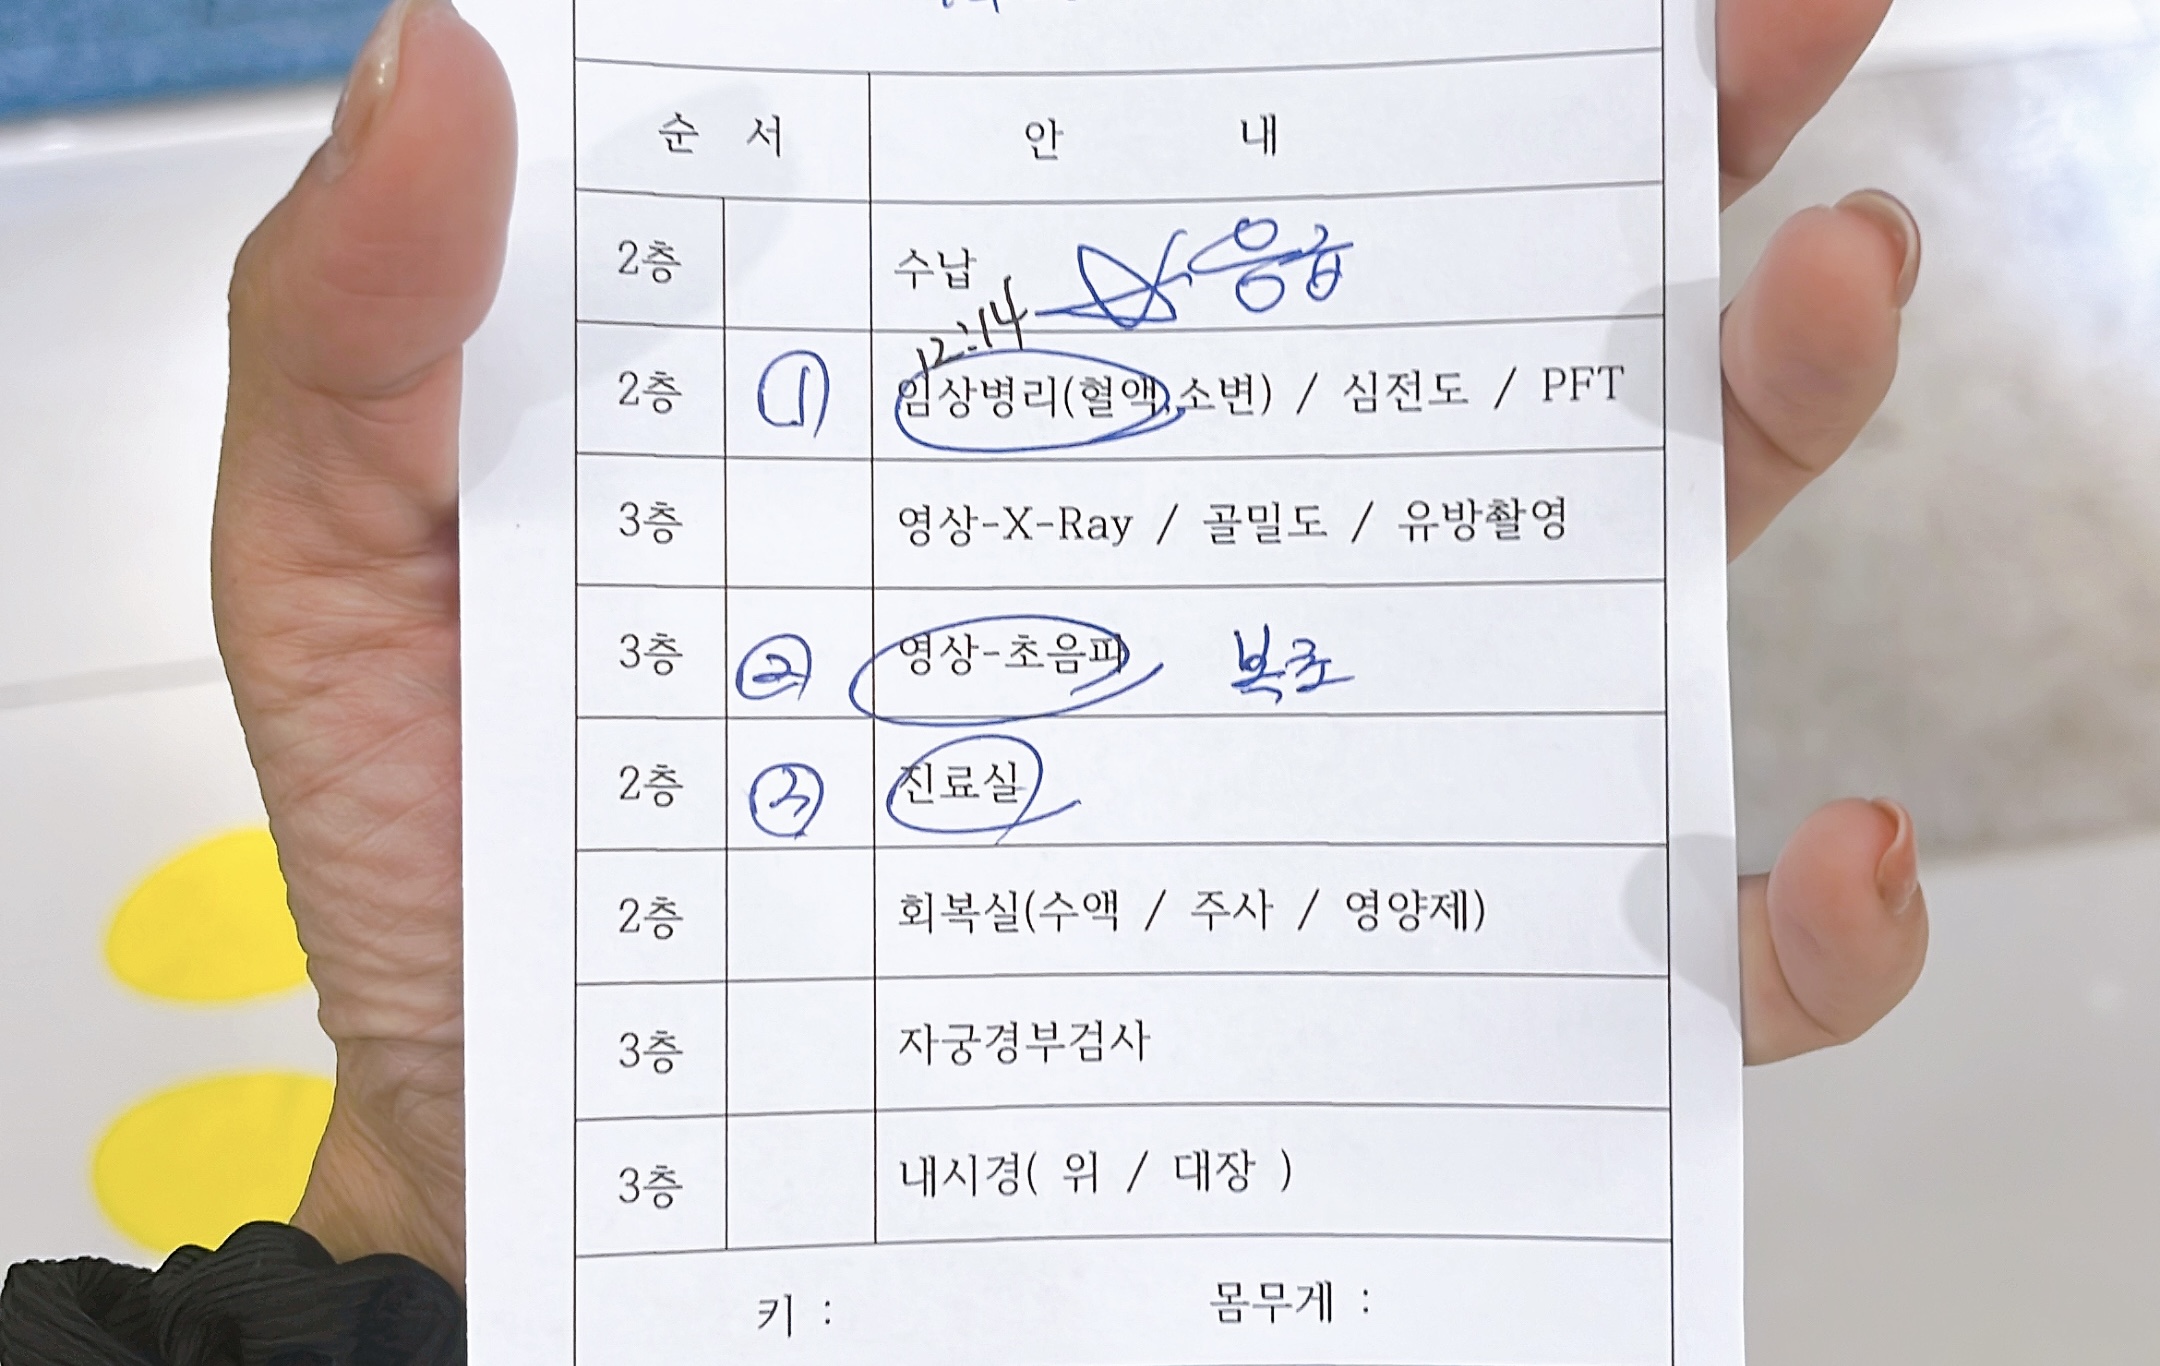 순 서 안 내
2층 수납 응급
12:14
2층 ① 임상병리(혈액,소변) / 심전도 / PFT
3층 영상-X-Ray / 골밀도 / 유방촬영
3층 ② 영상-초음파 복초
2층 ③ 진료실
2층 회복실(수액 / 주사 / 영양제)
3층 자궁경부검사
3층 내시경( 위 / 대장 )
키 : 몸무게 :